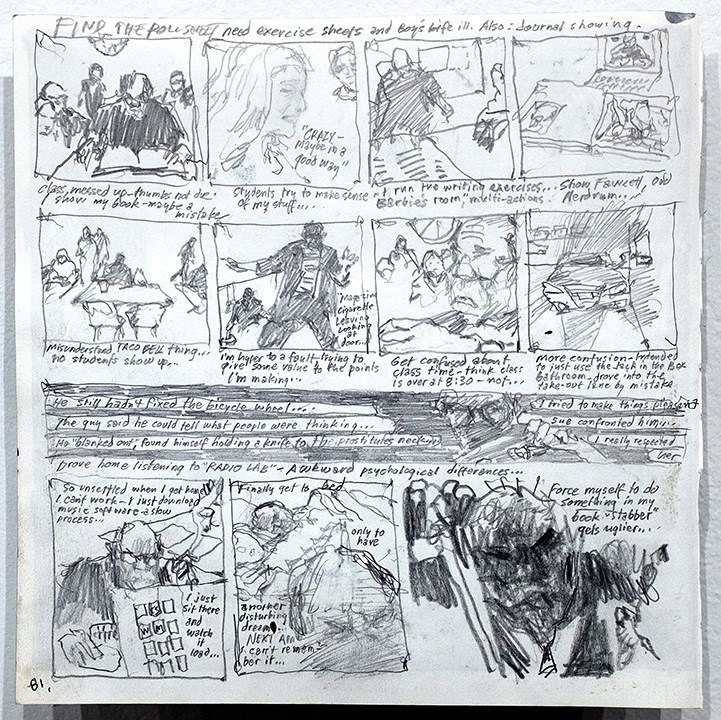 FIND THE ROLL SHEET, need exercise sheets and Boy's life ill. Also: Journal showing.
"CRAZY-
maybe in a
good way"
Class, messed up-thumbs not due.
show my book-maybe a
mistake
Students try to make sense
of my stuff....
I run two writing exercises... Show Fawcett, Odd
"Barbie's room" multi-actions Nerdrum....
Magazine
cigarette
Leaving
Looking
at
door...
Misunderstand TACO BELL thing...
no students show up...
I'm hyper to a fault, trying to
give some value to the points
I'm making...
Get confused about
class time-think class
is over at 8:30-not...
More confusion-Intended
to just use the Jack in the Box
Bathroom-drove into the
take-out lane by mistake.
He still hadn't fixed the bicycle wheel....
The guy said he could tell what people were thinking....
He "blanked out", found himself holding a knife to the prostitutes neck
I tried to make things pleasant
Sue confronted him...
I really respected
her
Drove home listening to "RADIO LAB"- Awkward psychological differences...
So unsettled when I got home
I can't work-I just download
music software-a slow
process...
I just
sit there
and
watch
it
load...
Finally get to bed
only to
have
another
disturbing
dream.
NEXT AM
I can't remem-
ber it...
Force myself to do
something in my
book-"stabber"
gets uglier...
81.